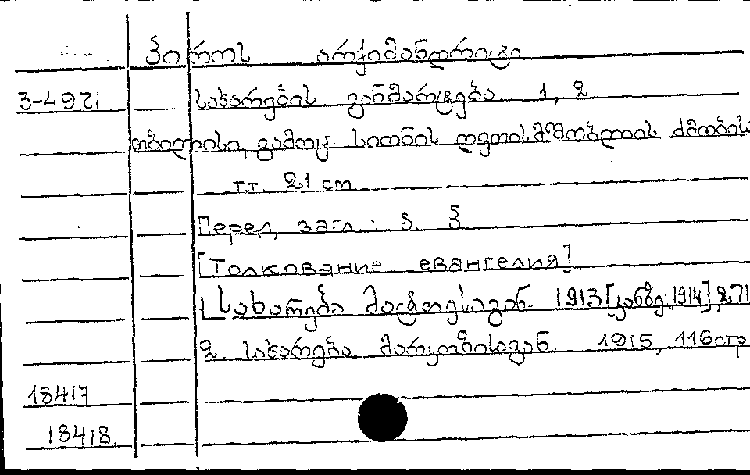 პიროს არქიმანდრიტი
3-497 სახარების განმარტება 1, 2
თბილისი, გამოც. სიონის ღვთისმშობლის ძმობისა
тт. 21 см.
Перед загл.: ა. კ
[Толкование евангелия]
1 სახარება მათესაგან 1913 [კანზე: 1914], 271
2. სახარება მარკოზისაგან 1915, 116 стр
18417
18418.